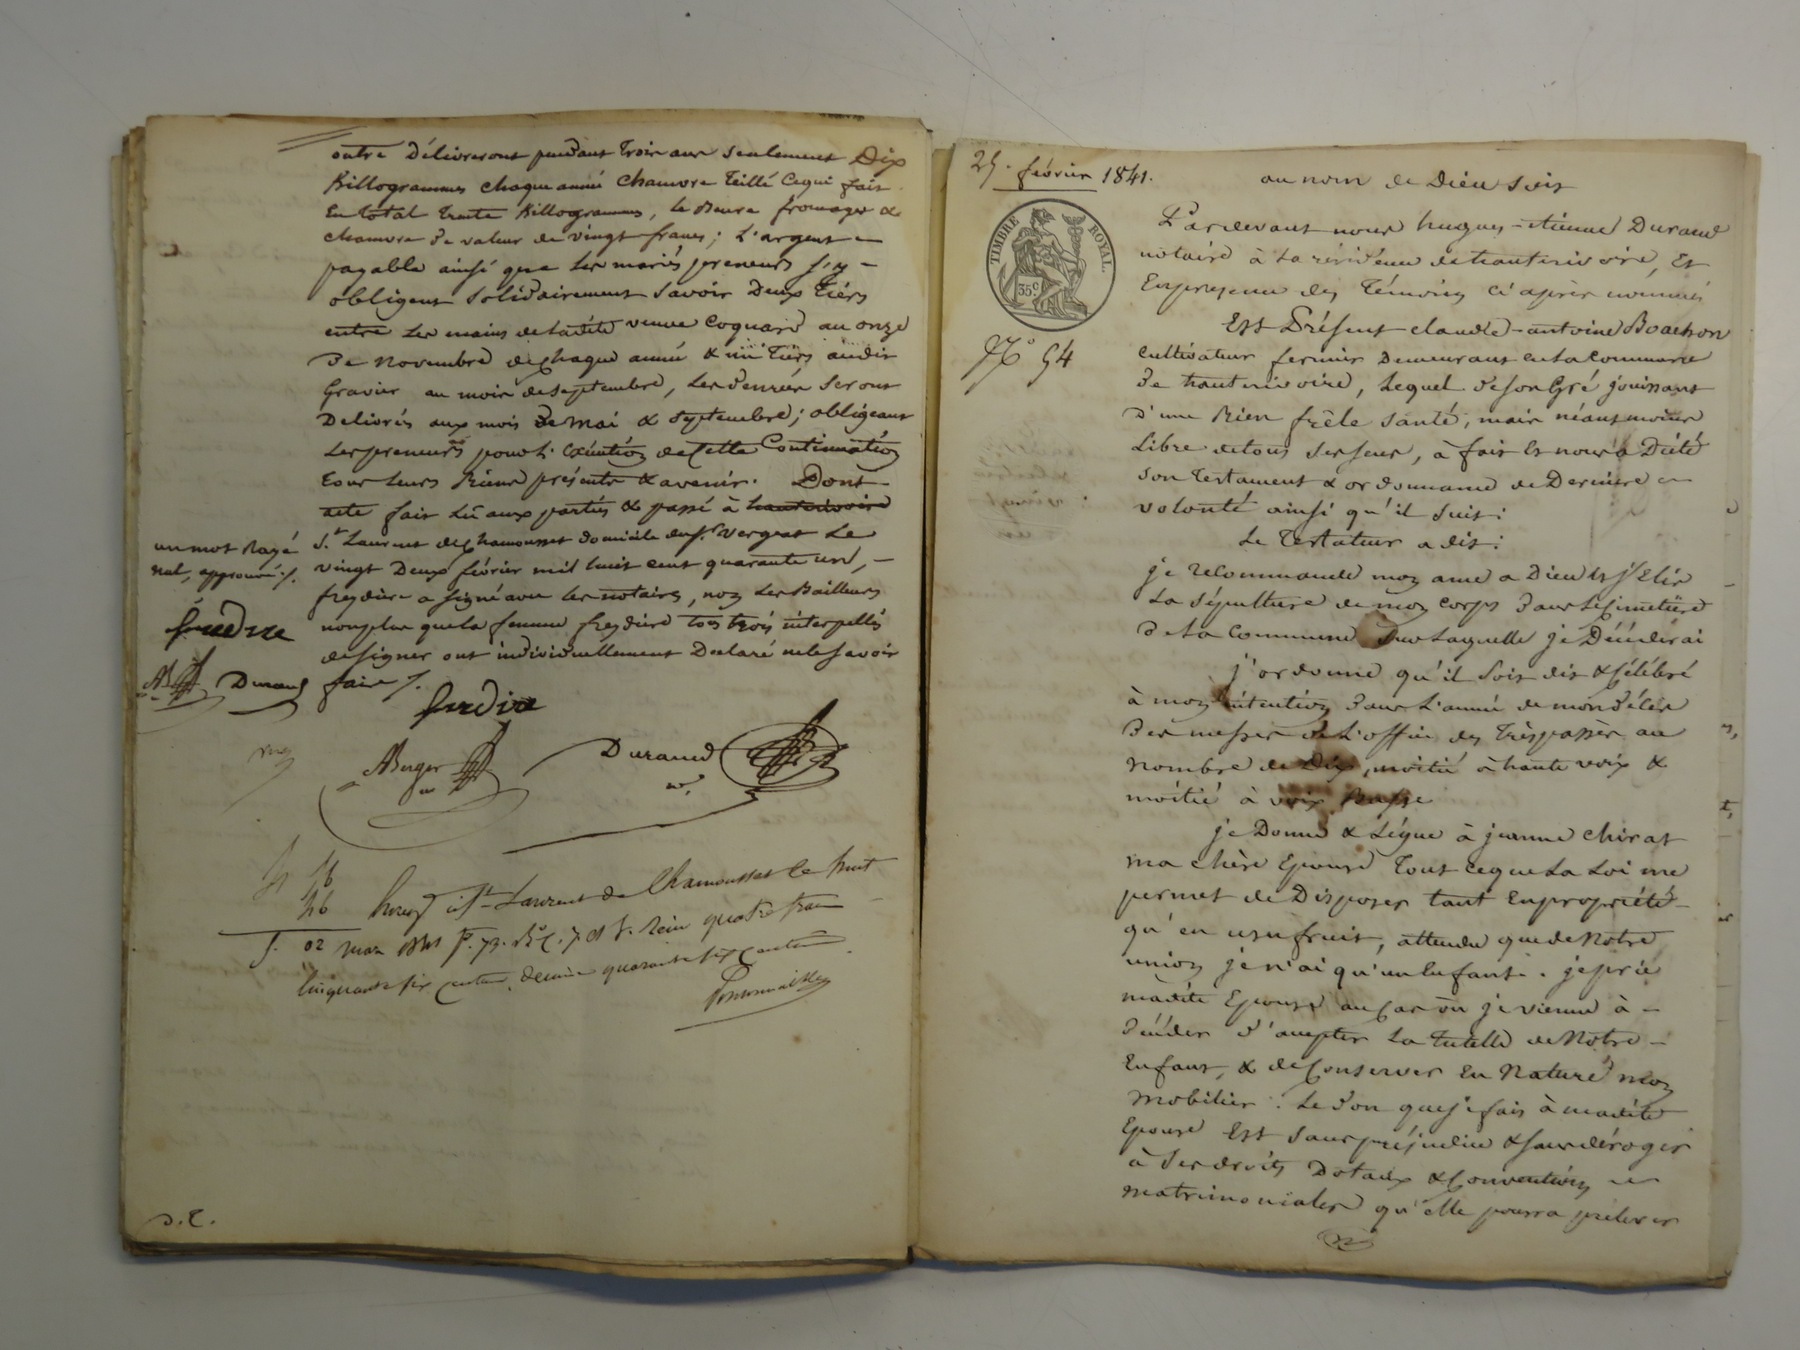 outre Délivreront pendant trois ans seulement Dix
Killogrammes chaque année chamvre teillé ce qui fait
En total trente Killogrammes, le Beure fromages &
chamvre de valeur de vingt francs ; L'argent
payable ainsi que les mariés preneurs s'y
obligent solidairement savoir Deux tiérs
entre les mains de ladite veuve Coquard au onze
De novembre de chaque année & un tiérs audit
Gravier au mois de septembre, les denrées seront
Délivrés aux mois de mai & septembre ; obligeant
les preneurs pour l'exécution de Cette Continuation
tous leurs Biens présents & avenir. Dont
acte fait lu aux parties & passé à hauterivoire
St Laurent de Chamousset domicile du Sr vergeat Le
vingt Deux février mil huit cent quarante un,
freydiere a signé avec les notaires, non les Bailleurs
nonplus que la femme freydiere tous trois interpellés
de signer ont individuellement Declaré ne le savoir
faire /.
un mot Rayé
nul, approuvé /.
Durand
ABerger
Durand
St-Laurent de Chamousset le huit
mars 1841 reçu quatre francs
Cinquante six centimes, décime quarante six centimes
D.T.
25. février 1841.
au nom de Dieu soit
TIMBRE ROYAL.
35c
No 54
Pardevant nous hugues-étienne Durand
notaire à la résidence de hauterivoire, Et
En presence des témoins ci après nommés
Est Présent claude-antoine Boachon
cultivateur fermier Demeurant en la Commune
de hauterivoire, lequel de son Gré jouissant
d'une Bien frêle santé, mais néantmoins
Libre de tous ses sens, à fait Et nous à Dicté
son testament & ordonnance de Derniere
volonté ainsi qu'il suit :
Le Testateur a dit :
je recommande mon ame a Dieu Et j'Elis
La sépulture de mon Corps dans le Cimetière
de la Commune dans laquelle je Décéderai
j'ordonne qu'il soit dit & Célébré
à mon intention dans l'année de mon décès
Des messes de l'office des trépassés au
nombre de Dix, moitié à haute voix &
moitié à voix Basse
je Donne & Légue à jeanne Chirat
ma chère Epouse tout ce que La Loi me
permet de Disposer tant En propriété
qu'en usufruit, attendu que de Notre
union je n'ai qu'un Enfant. je prie
madite Epouse au Cas où je vienne à
décéder d'accepter la tutelle de Notre
Enfant, & de Conserver En Nature mon
mobilier. Le don que je fais à madite
Epouse Est sans préjudice & sans déroger
à ses droits Dotaux & Conventions
matrimoniales qu'elle pourra prélever